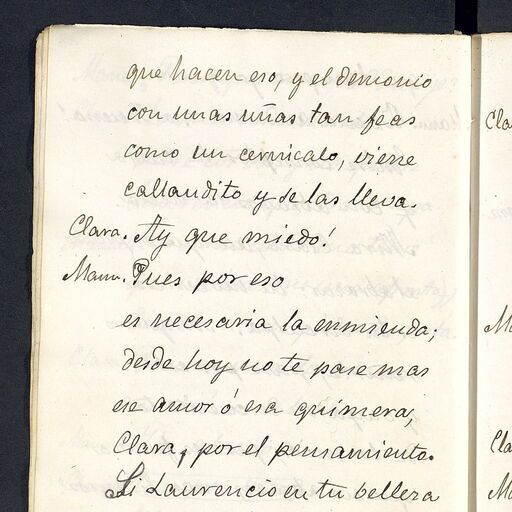 que hacen eso, y el demonio
con unas uñas tan feas
como un cernicalo, viene
callandito y se las lleva.
Clara. Ay que miedo!
Manu. Pues por eso
es necesaria la enmienda;
desde hoy no te pase mas
ese amor ó esa quimera,
Clara, por el pensamiento.
Si Laurencio en tu belleza
Cla
Ma
Cla
Ma